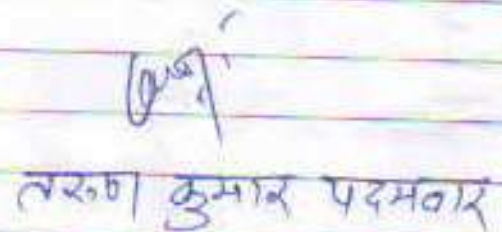 तरूण कुमार पदमवार